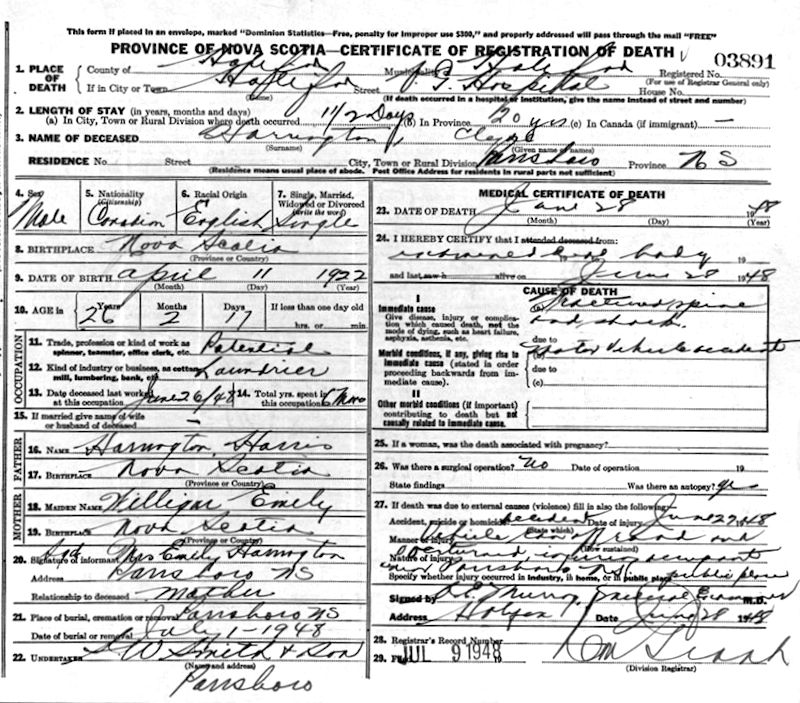 This form if placed in an envelope, marked "Dominion Statistics—Free, penalty for improper use $300," and properly addressed will pass through the mail "FREE"
PROVINCE OF NOVA SCOTIA—CERTIFICATE OF REGISTRATION OF DEATH
03891
1. PLACE OF DEATH
County of Halifax Municipality Halifax Registered No.
(For use of Registrar General only)
If in City or Town Halifax Street V. G. Hospital House No.
(Name) (If death occurred in a hospital or institution, give the name instead of street and number)
2. LENGTH OF STAY (in years, months and days)
(a) In City, Town or Rural Division where death occurred 1 1/2 Days (b) In Province 20 yrs (c) In Canada (if immigrant) —
3. NAME OF DECEASED Harrington Clayd
(Surname) (Given name or names)
RESIDENCE No. Street City, Town or Rural Division Parrsboro Province N S
(Residence means usual place of abode. Post Office Address for residents in rural parts not sufficient)
4. Sex Male
5. Nationality (Citizenship) Canadian
6. Racial Origin English
7. Single, Married, Widowed or Divorced (Write the word) Single
8. BIRTHPLACE Nova Scotia
(Province or Country)
9. DATE OF BIRTH April 11 1922
(Month) (Day) (Year)
10. AGE in Years 26 Months 2 Days 17 If less than one day old
hrs. or min.
OCCUPATION
11. Trade, profession or kind of work as
spinner, teamster, office clerk, etc.
12. Kind of industry or business, as cotton
mill, lumbering, bank, etc.
13. Date deceased last worked at this occupation June 26/48
14. Total yrs. spent in this occupation 6 Mos
15. If married give name of wife
or husband of deceased —
FATHER
16. NAME Harrington, Harris
17. BIRTHPLACE Nova Scotia
(Province or Country)
MOTHER
18. MAIDEN NAME Willigar Emily
19. BIRTHPLACE Nova Scotia
(Province or Country)
20. Signature of informant Sgd Mrs Emily Harrington
Address Parrsboro NS
Relationship to deceased Mother
21. Place of burial, cremation or removal Parrsboro NS
Date of burial or removal July 1-1948
22. UNDERTAKER W Smith & Son
(Name and address)
Parrsboro
MEDICAL CERTIFICATE OF DEATH
23. DATE OF DEATH June 28 1948
(Month) (Day) (Year)
24. I HEREBY CERTIFY that I attended deceased from:
body
and last saw h alive on June 28 1948
CAUSE OF DEATH
I
Immediate cause
Give disease, injury or complication which caused death, not the mode of dying, such as heart failure, asphyxia, asthenia, etc.
(a) Fractured spine
and shock
due to
Morbid conditions, if any, giving rise to immediate cause (stated in order proceeding backwards from immediate cause).
Motor Vehicle accident
due to
(c)
II
Other morbid conditions (if important) contributing to death but not causally related to immediate cause.
25. If a woman, was the death associated with pregnancy?
26. Was there a surgical operation? No Date of operation 19
State findings Was there an autopsy? yes
27. If death was due to external causes (violence) fill in also the following:
Accident, suicide or homicide? accident Date of injury June 27 1948
(State which)
Manner of injury Vehicle road and
(How sustained)
Nature of injury overturned
near Parrsboro N.S.
Specify whether injury occurred in industry, in home, or in public place public place
Signed by Murray, Medical Examiner M.D.
Address Halifax Date June 28 1948
28. Registrar's Record Number
29. Filed JUL 9 1948
(Division Registrar)